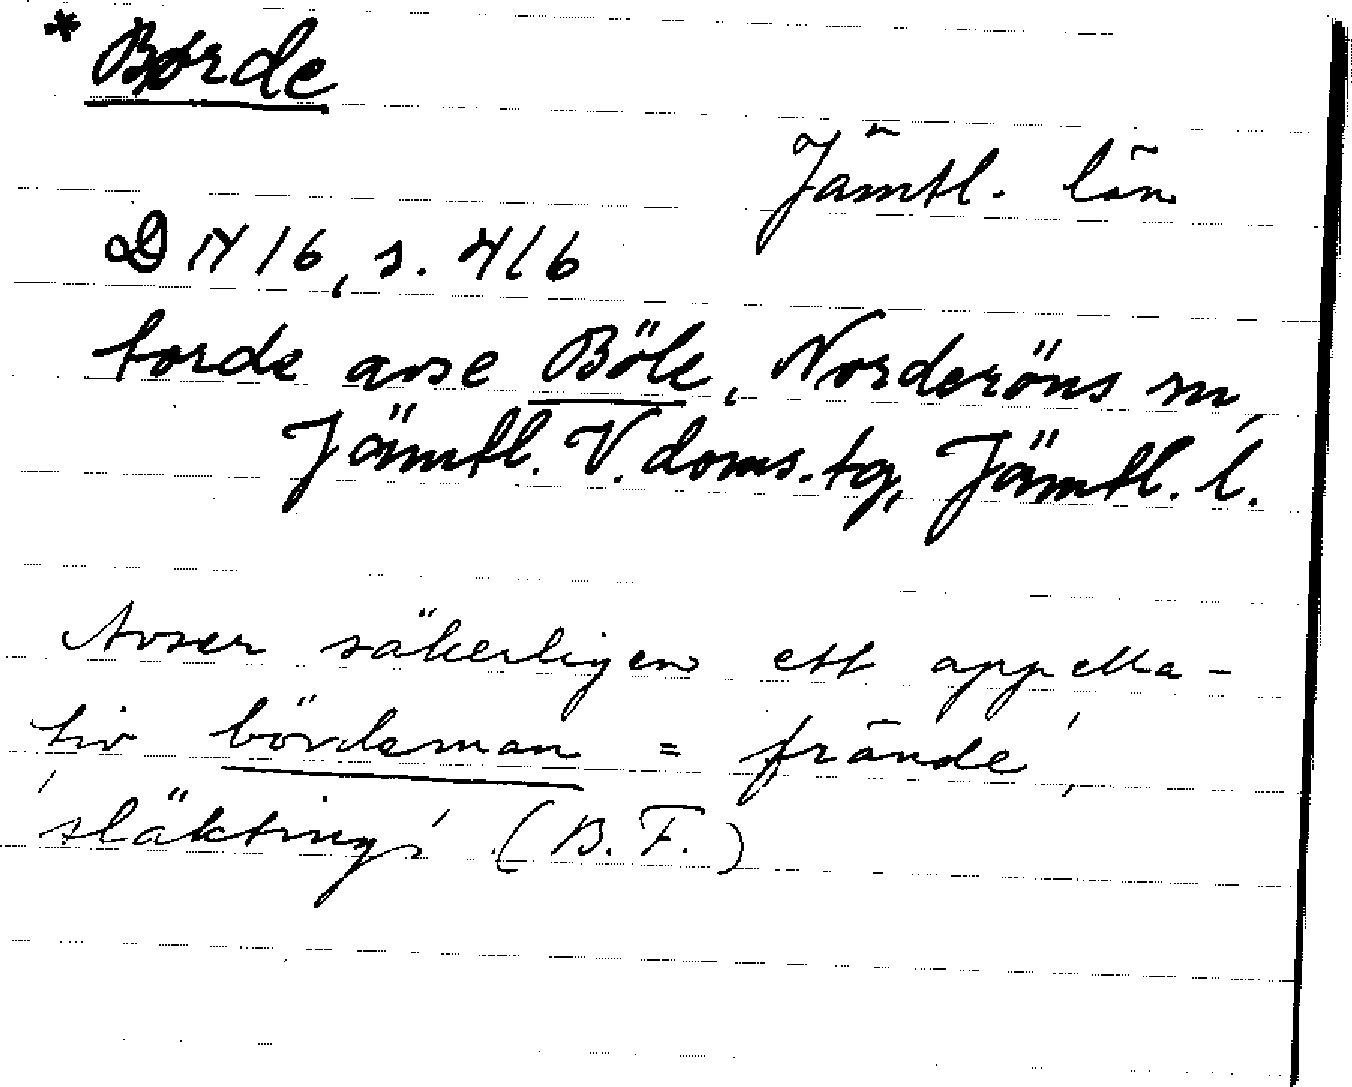 * Børde
Jämtl. län
DN 16, s. 416
torde avse Böle, Norderöns sn,
Jämtl. V. doms. tg, Jämtl. l.
Avser säkerligen ett appella-
tiv bördeman = frände',
'släkting' (B. F.)